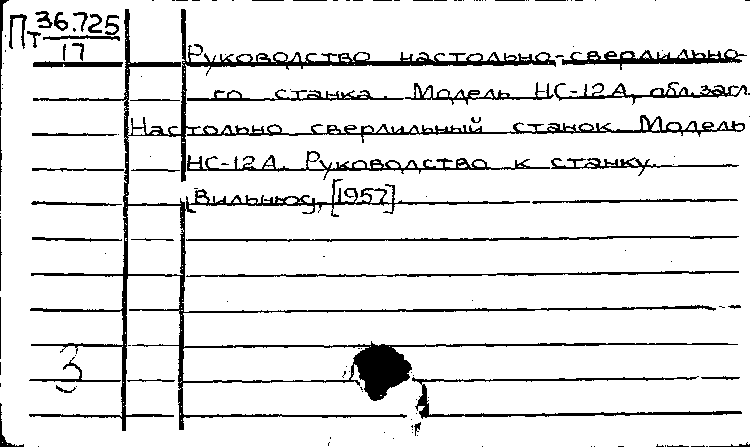 Пт 36.725
17
Руководство настольно-сверлильно-
го станка. Модель НС-12А, обл.загл.
Настольно сверлильный станок. Модель
НС-12А. Руководство к станку.
Вильнюс, [1957]
3